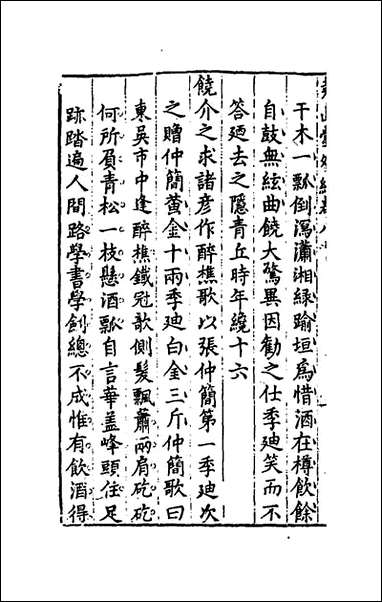 干木一瓢倒瀉瀟湘緑踰垣為惜酒在樽飲餘
自鼓無絃曲饒大驚異因勸之仕季廸笑而不
答廼去之隱青丘時年纔十六
饒介之求諸彦作醉樵歌以張仲簡第一季廸次
之贈仲簡黄金十兩季廸白金三斤仲簡歌曰
東吳市中逢醉樵鐵冠欹側髮飄蕭兩肩矻矻
何所負青松一枝懸酒瓢自言華盖峰頭住足
跡踏遍人間路學書學劍總不成惟有飲酒得